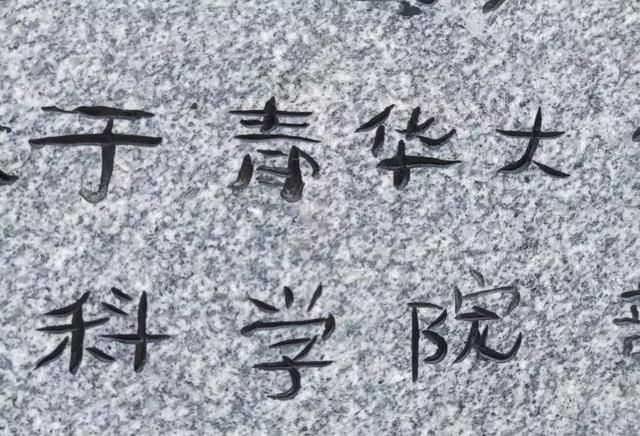 于青华大
科学院